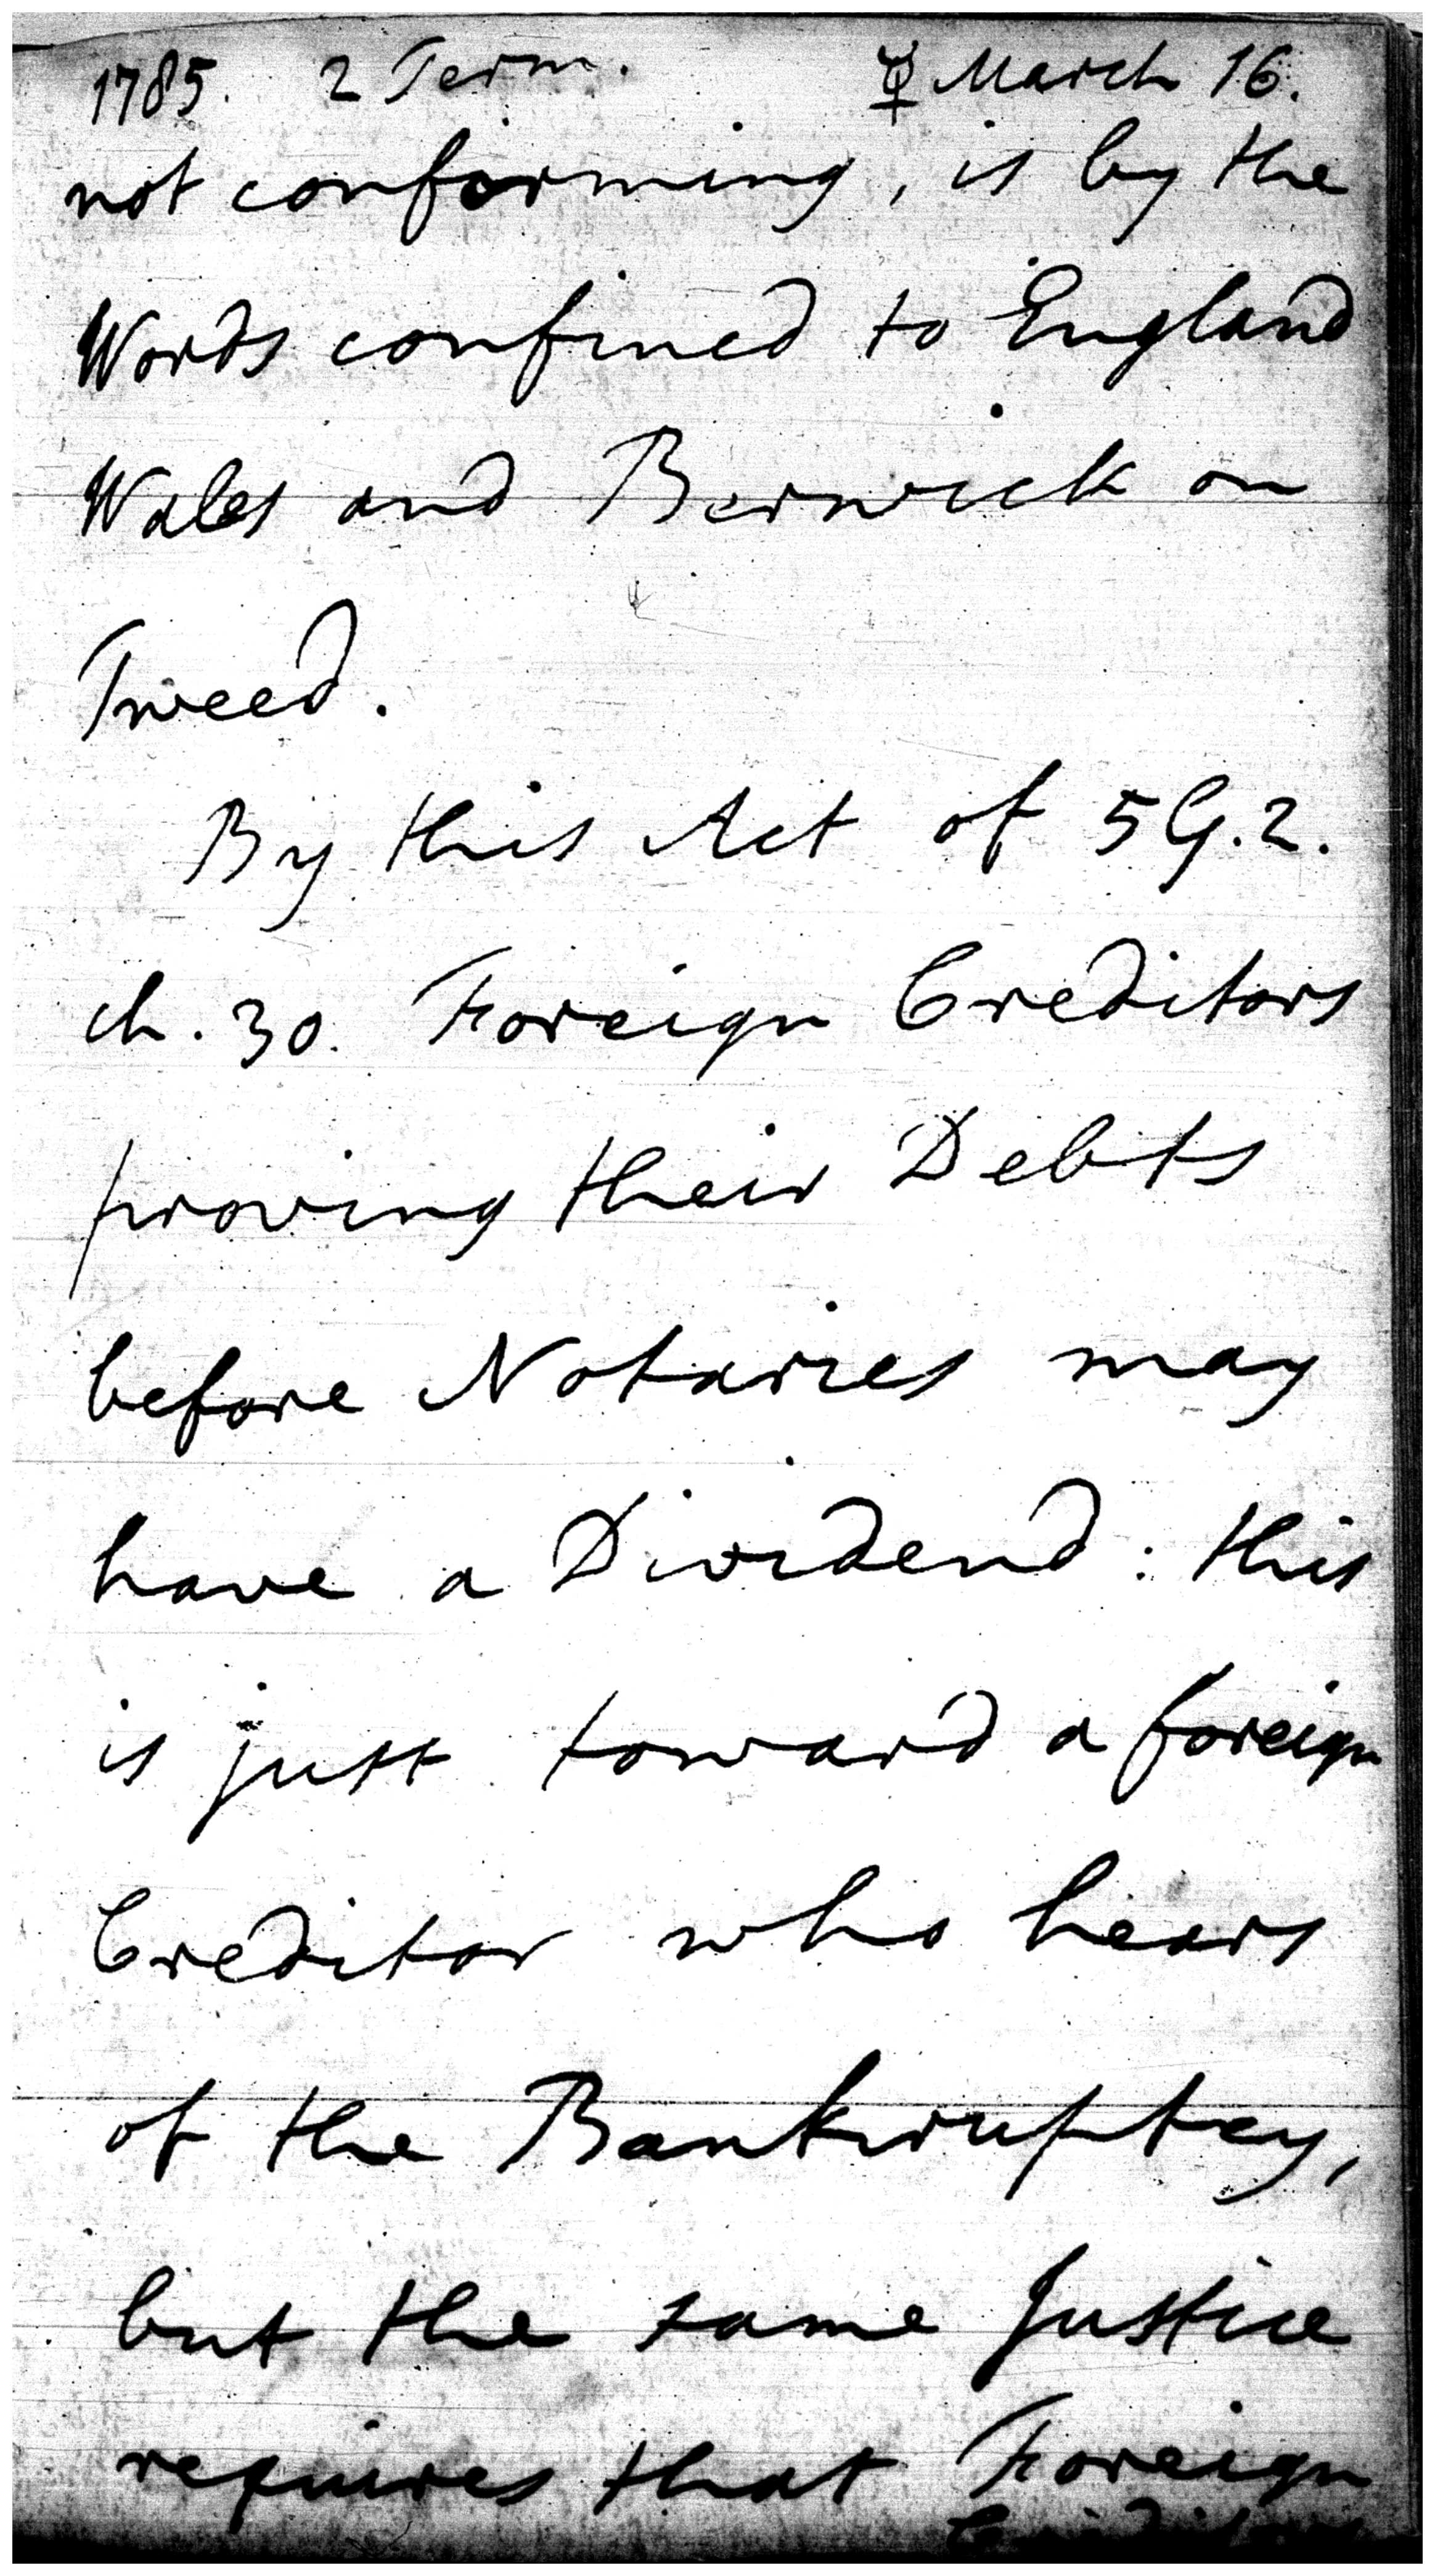 1785. 2 Term. ☿ March 16.
not conforming, is by the
Words confined to England
Wales and Berwick on
Tweed.
By this Act of 5 G. 2.
ch. 30. Foreign Creditors
proving their Debts
before Notaries may
have a Dividend: this
is just toward a foreign
Creditor who hears
of the Bankruptcy,
but the same Justice
requires that Foreign
Creditors